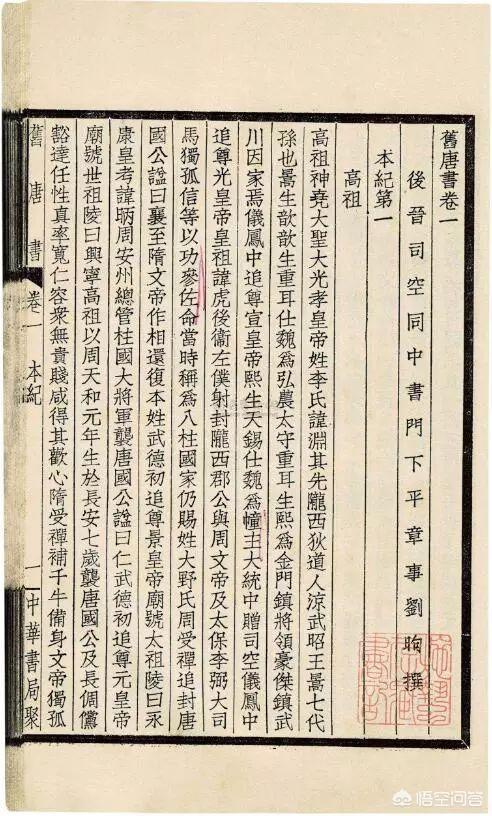 舊唐書卷一
後晉司空同中書門下平章事劉昫撰
本紀第一
高祖
高祖神堯大聖大光孝皇帝姓李氏諱淵其先隴西狄道人涼武昭王暠七代
孫也暠生歆歆生重耳仕魏爲弘農太守重耳生熙爲金門鎮將領豪傑鎮武
川因家焉儀鳳中追尊宣皇帝熙生天錫仕魏爲幢主大統中贈司空儀鳳中
追尊光皇帝皇祖諱虎後衞左僕射封隴西郡公與周文帝及太保李弼大司
馬獨孤信等以功參佐命當時稱爲八柱國家仍賜姓大野氏周受禪追封唐
國公諡曰襄至隋文帝作相還復本姓武德初追尊景皇帝廟號太祖陵曰永
康皇考諱昞周安州總管柱國大將軍襲唐國公諡曰仁武德初追尊元皇帝
廟號世祖陵曰興寧高祖以周天和元年生於長安七歲襲唐國公及長倜儻
豁達任性真率寬仁容衆無貴賤咸得其歡心隋受禪補千牛備身文帝獨孤
舊唐書 卷一 本紀 一 中華書局聚
悟空问答